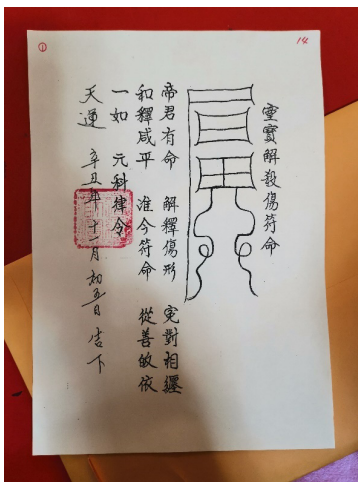 ①
14
靈寶解殺傷符命
帝君有命 解釋傷形 冤對相纏
和釋咸平 准今符命 從善皈依
一如 元科律令
天運 辛丑年十一月初五日 吉下